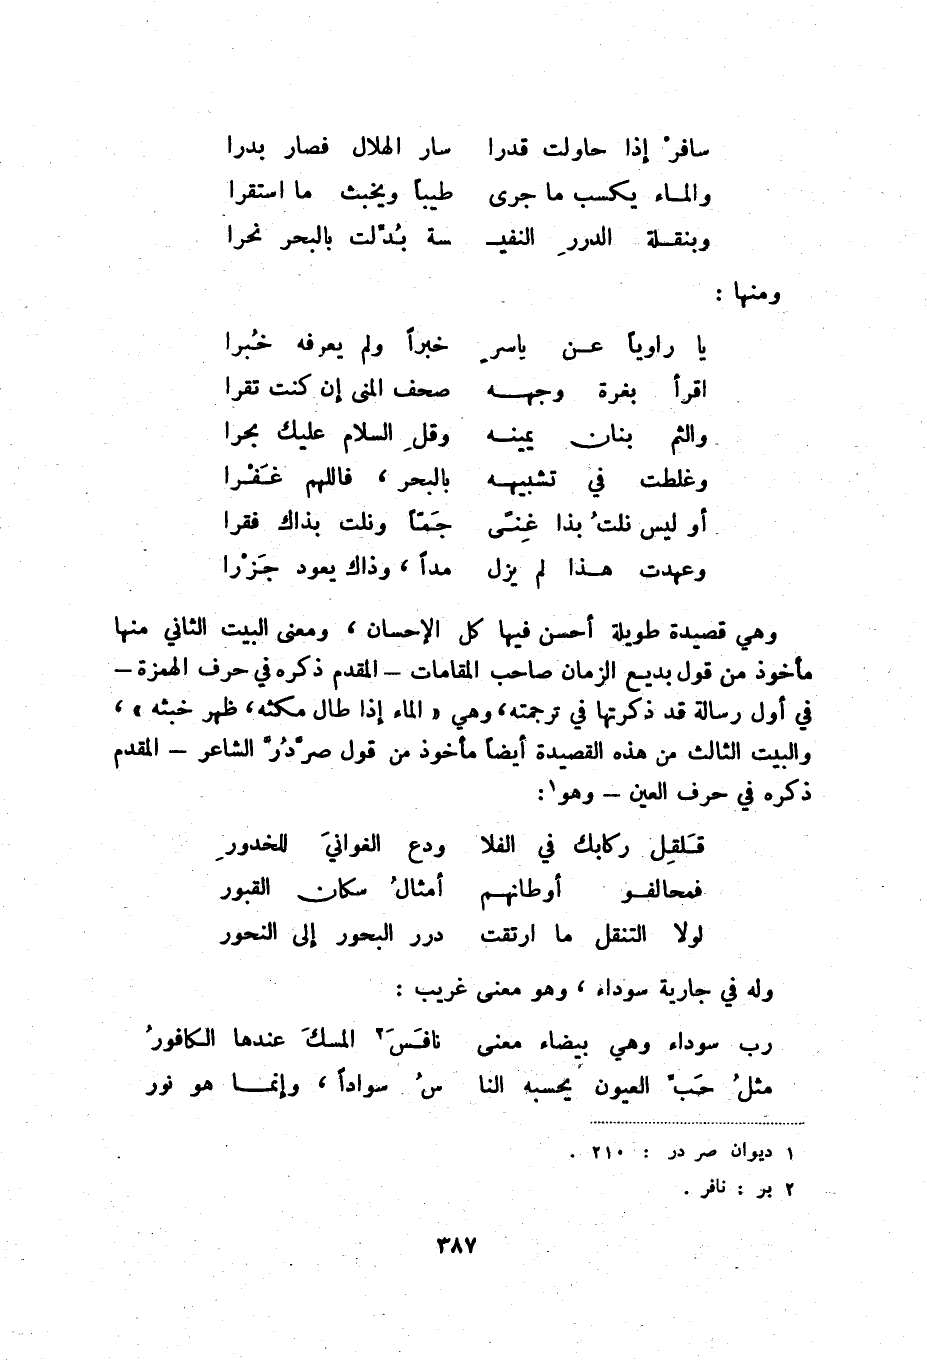 سافرْ إذا حاولت قدرا سار الهلال فصار بدرا
والماء يكسب ما جرى طيباً ويخبث ما استقرا
وبنقلة الدررِ النفيـ ـسة بُدّلت بالبحر نحرا
ومنها :
يا راوياً عن ياسرٍ خبراً ولم يعرفه خُبرا
اقرأ بغرة وجهه صحف المنى إن كنت تقرا
والثم بنان يمينه وقلِ السلام عليك بحرا
وغلطت في تشبيهه بالبحر ، فاللهم غَفْرا
أو ليس نلتُ بذا غِنىً جَمّاً ونلت بذاك فقرا
وعهدت هذا لم يزل مداً ، وذاك يعود جَزْرا
وهي قصيدة طويلة أحسن فيها كل الإحسان ، ومعنى البيت الثاني منها
مأخوذ من قول بديع الزمان صاحب المقامات – المقدم ذكره في حرف الهمزة –
في أول رسالة قد ذكرتها في ترجمته، وهي « الماء إذا طال مكثه، ظهر خبثه » ،
والبيت الثالث من هذه القصيدة أيضاً مأخوذ من قول صرّدُرّ الشاعر – المقدم
ذكره في حرف العين – وهو١:
قَلقِل ركابك في الفلا ودع الغوانيَ للخدورِ
فمحالفو أوطانهم أمثالُ سكان القبور
لولا التنقل ما ارتقت درر البحور إلى النحور
وله في جارية سوداء ، وهو معنى غريب :
رب سوداء وهي بيضاء معنى نافَسَ٢ المسكَ عندها الكافورُ
مثلُ حَبّ العيون يحسبه النا سُ سواداً ، وإنما هو نور
١ ديوان صر در : ٢١٠ .
٢ بر : نافر .
٣٨٧